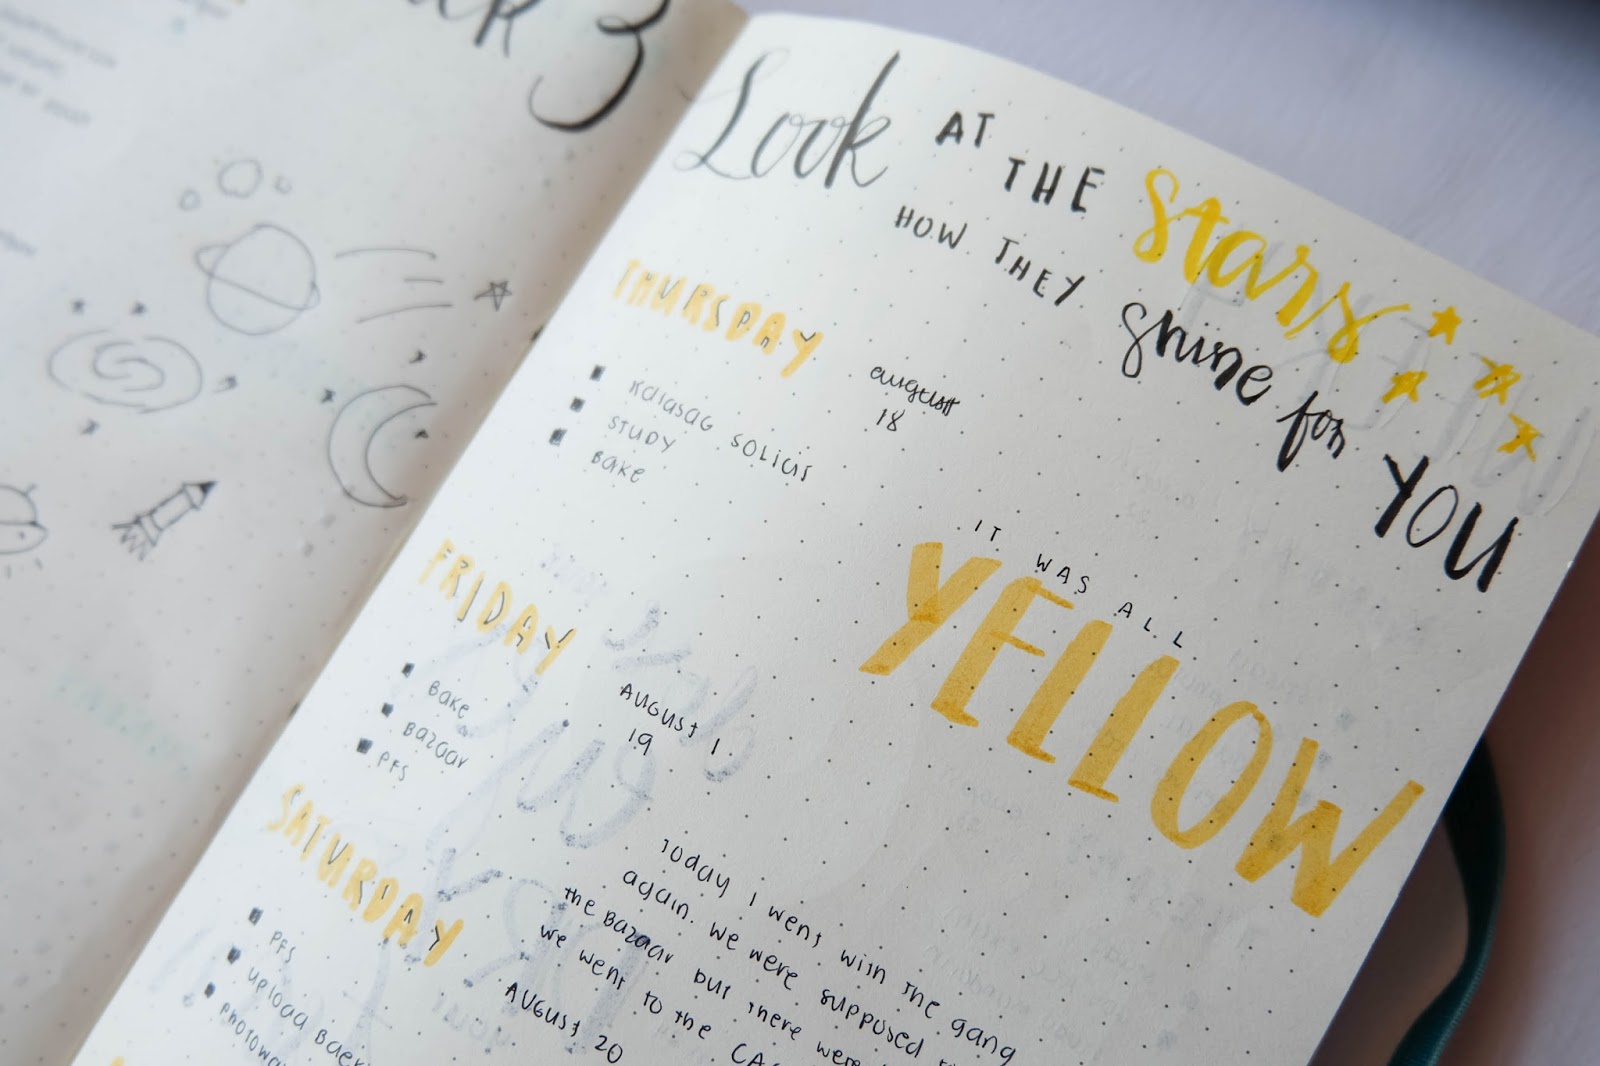 3
Look AT THE Stars
HOW THEY Shine for YOU
THURSDAY
august
18
KALASAG SOLICIS
STUDY
BAKE
IT WAS ALL
YELLOW
FRIDAY
AUGUST 1
19
BAKE
BAZAAR
PFS
TODAY I WENT WITH THE GANG
AGAIN. WE WERE SUPPOSED
THE BAZAAR BUT THERE WERE
WE WENT TO THE
SATURDAY
AUGUST 20
PFS
UPLOAD